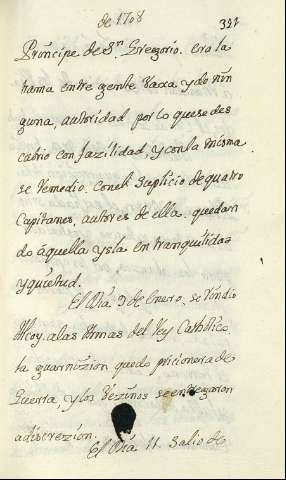 de 1708
321
Prõncipe de S.n Gregorio. era la
trama entre gente vaxa y de nin
guna, autoridad por lo que se des
cubrio con fazilidad, y con la misma
se Remedio. con el Suplicio de quatro
Capitanes, autores de ella. quedan
do aquella ysla en tranquilidad
y quietud.
El Dia 9 de Enero, se Rindio
Alcoy. a las Armas del Rey Catholico
la guarnizion quedo pricionera de
Guerra, y los Vezinos se entregaron
a discrezion.
El Dia 11 Salio de